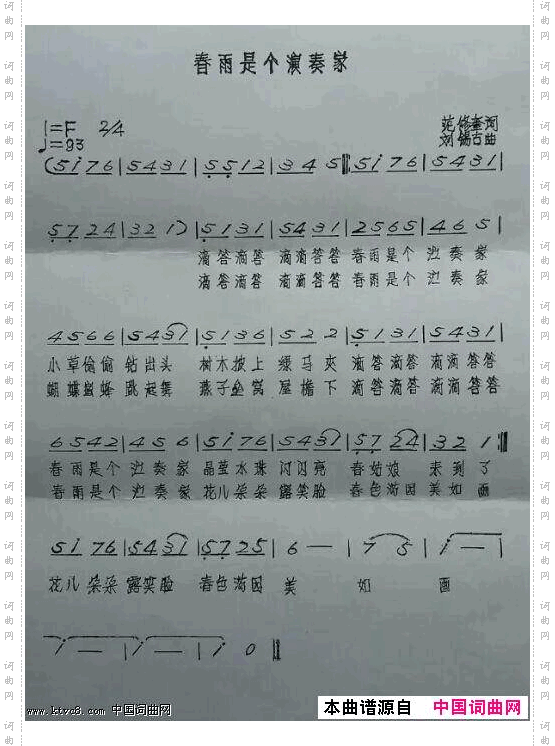 春雨是个演奏家
1=F 2/4
♩=93
范修奎词
刘锡古曲
(5i76|5431|5512|345:‖5i76|5431|
5724|321)|5131|5431|2565|465|
滴答滴答 滴滴答答 春雨是个 演奏家
滴答滴答 滴滴答答 春雨是个 演奏家
4566|5431|5136|522|5131|5431|
小草偷偷 钻出头 树木披上 绿 滴答滴答 滴滴答答
蝴蝶蜜蜂 跳起舞 燕子垒窝 屋檐下 滴答滴答 滴滴答答
6542|456|5i76|5431|5724|321:‖
春雨是个 演奏家 晶莹水珠 闪闪亮 春姑娘 来到了
春雨是个 演奏家 花儿朵朵 露笑脸 春色满园 美如画
5i76|5431|5725|6—|75|i—|
花儿朵朵 露笑脸 春色满园 美 如 画
i—|i—|i0‖
www.ktvc8.com 中国词曲网
本曲谱源自 中国词曲网
词曲网